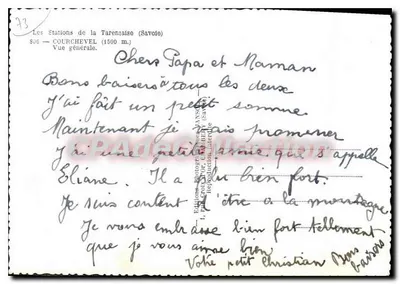 73
Les Stations de la Tarentaise (Savoie)
806 — COURCHEVEL (1500 m.)
Vue générale.
Chers Papa et Maman
Bons baisers à tous les deux
J'ai fait un petit somme
Maintenant je vais promener
J'ai une petite amie que s'appelle
Eliane. Il a plu bien fort.
Je suis content d'être a la montagne
Je vous embrasse bien fort tellement
que je vous aime bien
Votre petit Christian
Bons
baisers